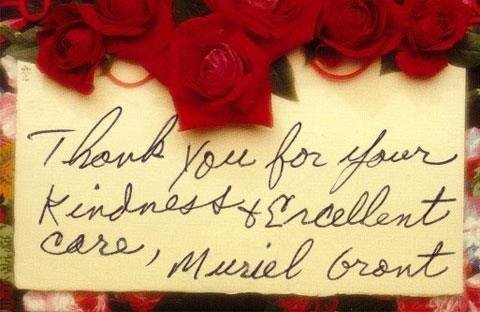 Thank you for your
Kindness & Excellent
care,
Muriel Grant